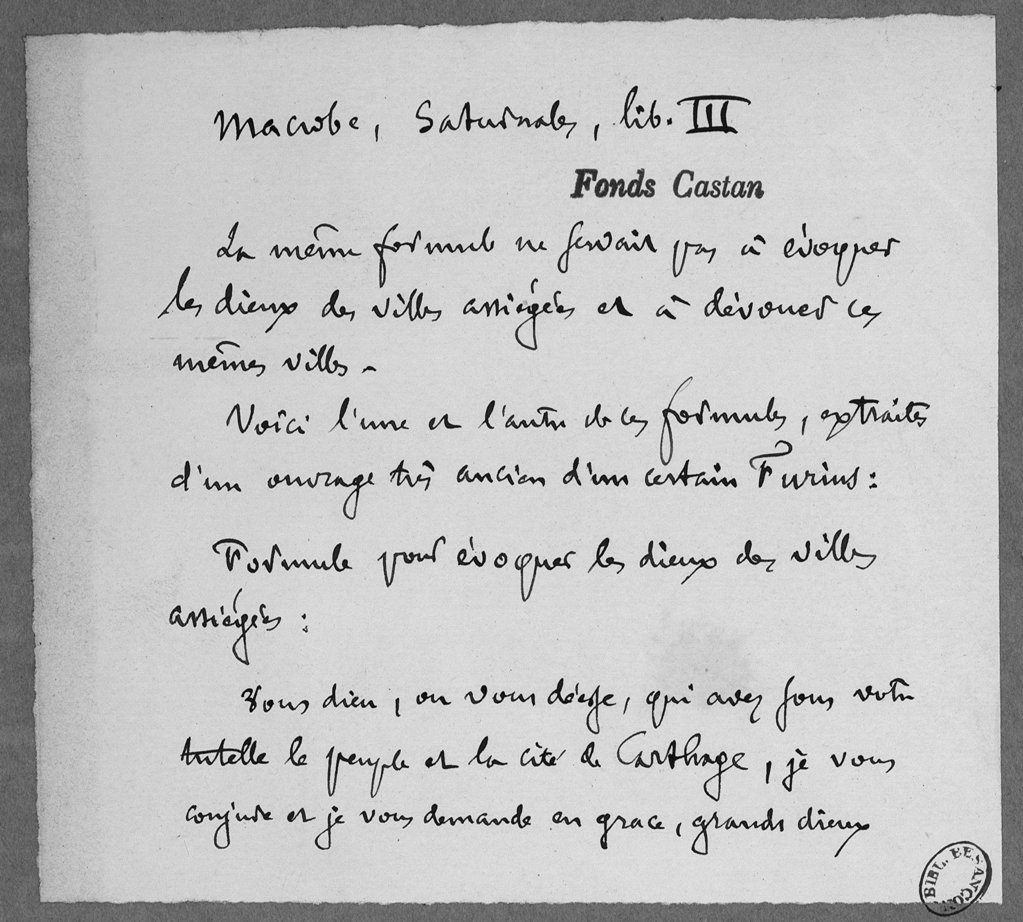 Macrobe, Saturnales, lib. III
Fonds Castan
La même formule ne servait pas à évoquer
les dieux des villes assiégées et à dévouer ces
mêmes villes.
Voici l'une et l'autre de ces formules, extraites
d'un ouvrage très ancien d'un certain Furius :
Formule pour évoquer les dieux des villes
assiégées :
Vous dieu, ou vous déesse, qui avez sous votre
tutelle le peuple et la cité de Carthage, je vous
conjure et je vous demande en grace, grands dieux
BIBL. BESANÇON